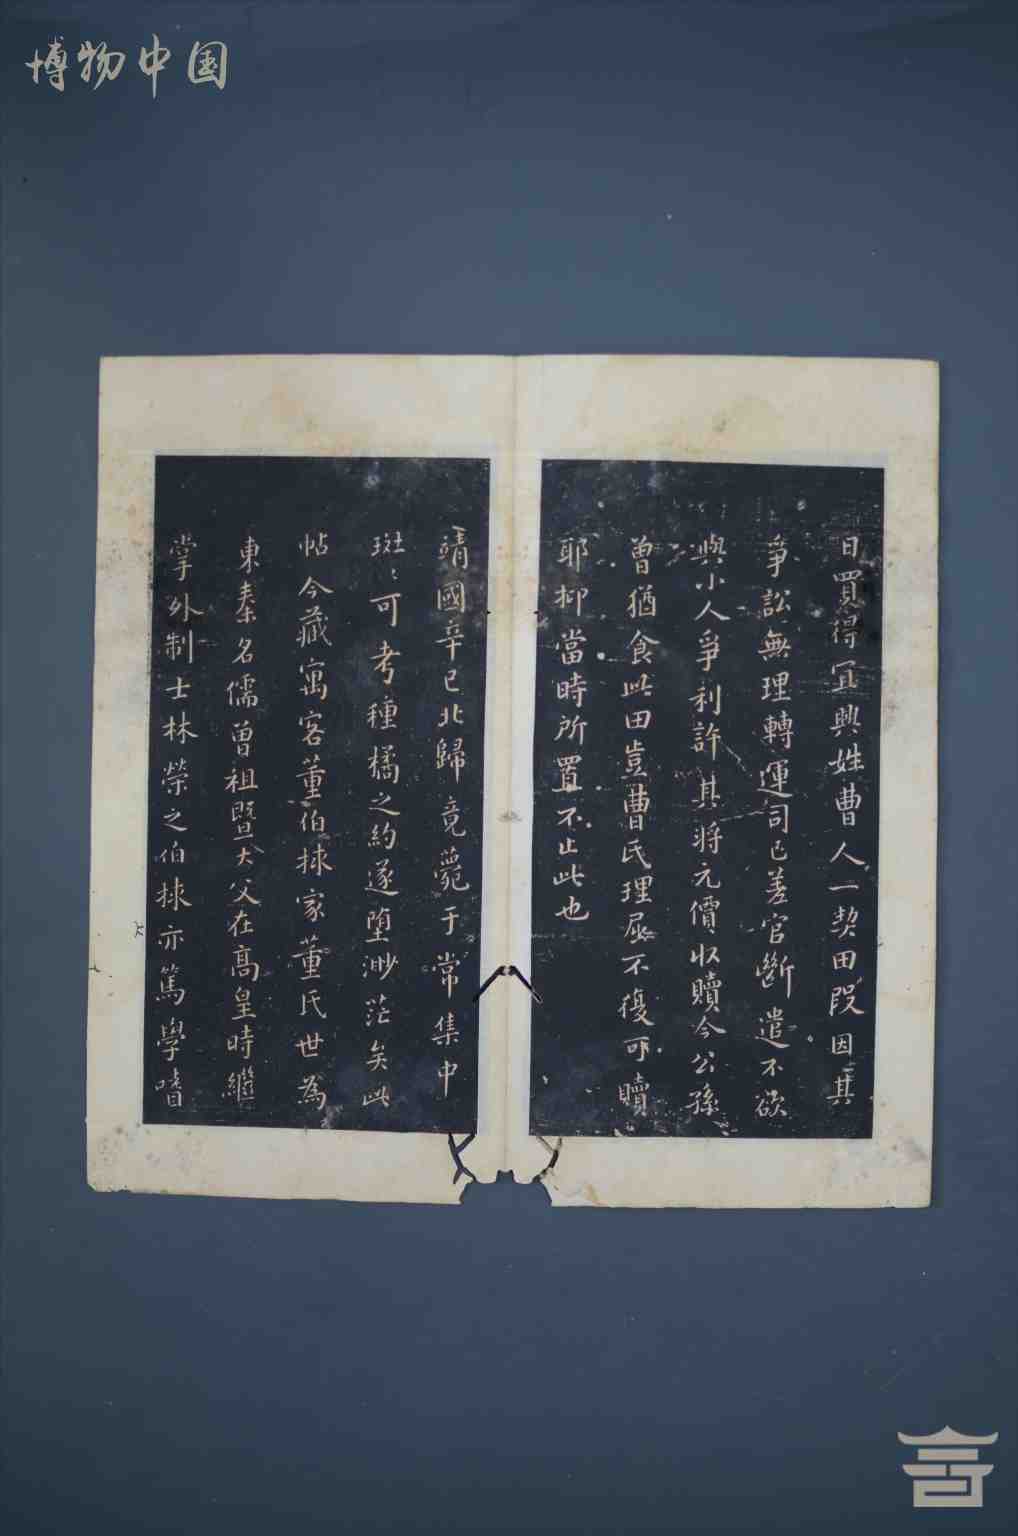 博物中国
日買得宜興姓曹人一契田段因其
爭訟無理轉運司已差官斷遣不欲
與小人爭利許其將元價收贖今公孫
曾猶食此田豈曹民理屈不復可贖
耶抑當時所置不止此也
靖國辛巳北歸竟薨于常集中
班〻可考種橘之約遂墮渺茫矣此
帖今藏寓客董伯捄家董氏世為
東秦名儒曾祖暨大父在高皇時繼
掌外制士林榮之伯捄亦篤學嗜